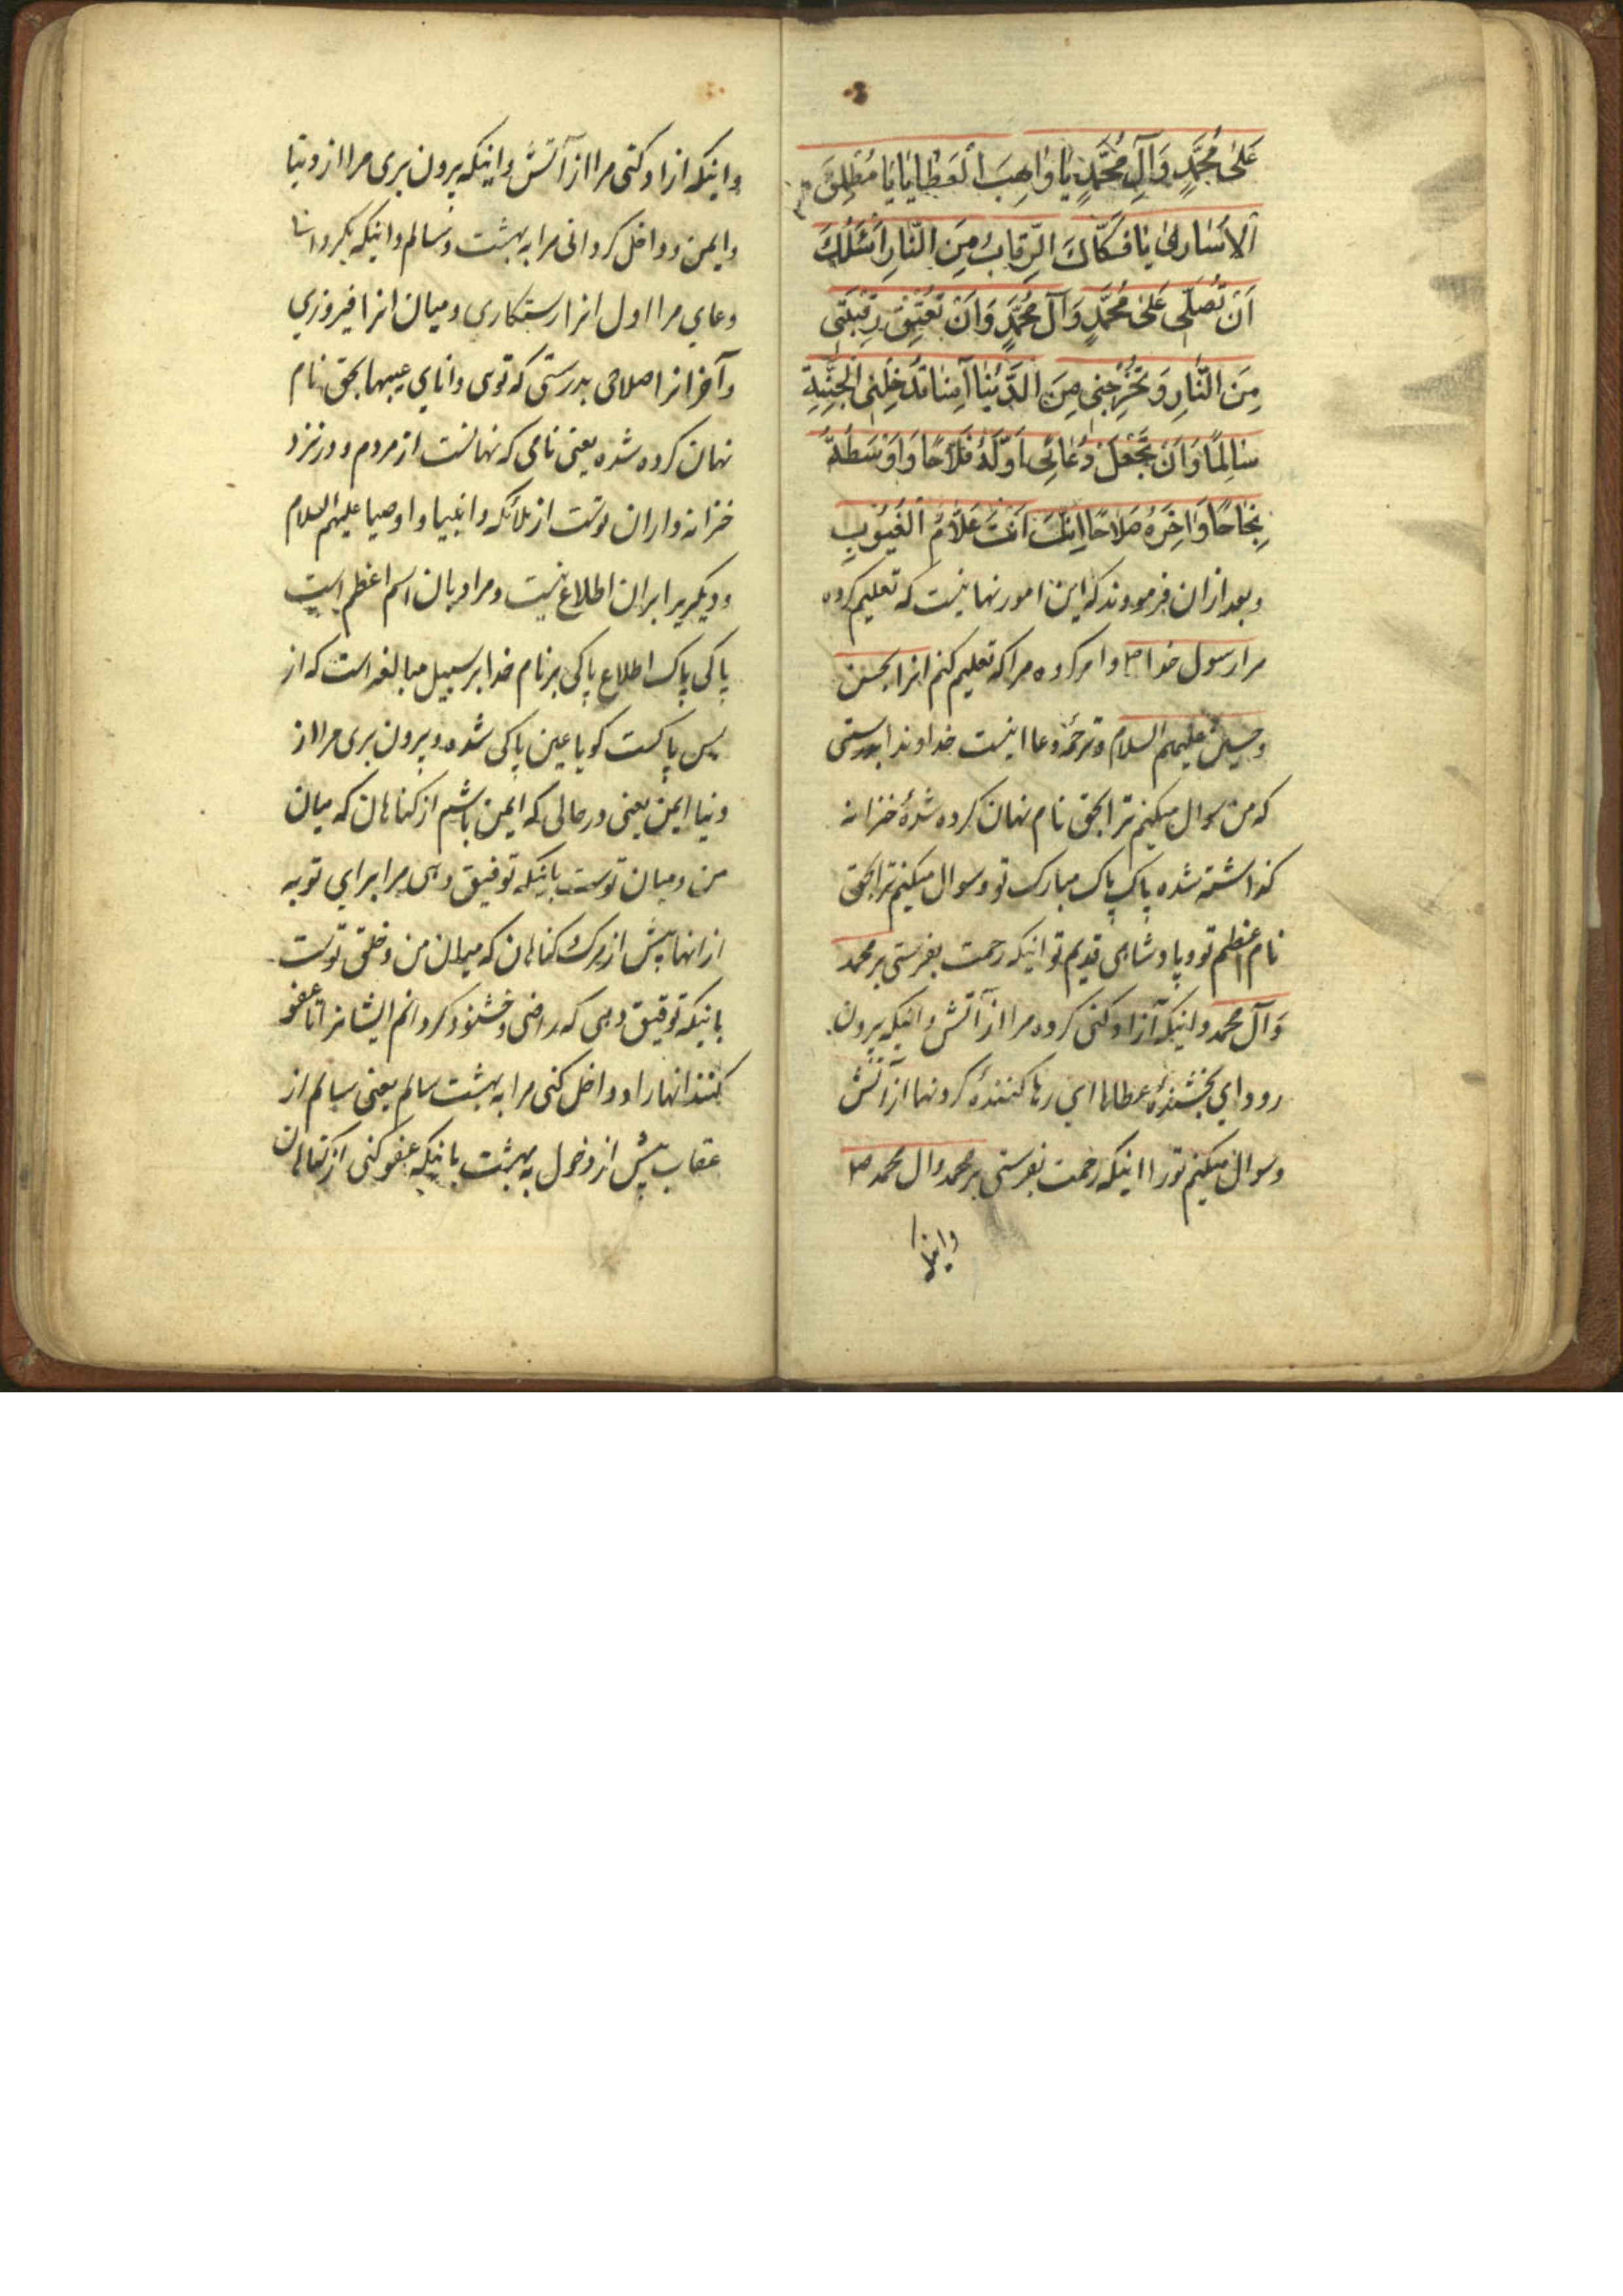 عَلیٰ مُحَمَّدٍ وَآلِ مُحَمَّدٍ یٰا وٰاهِبَ الْعَطٰایٰا یٰا مُطْلِقَ
اَلاُسٰاریٰ یٰا فَکّٰاکَ الرِّقٰابِ مِنَ النّٰارِ اَسْئَلُکَ
اَنْ تُصَلِّیَ عَلیٰ مُحَمَّدٍ وَآلِ مُحَمَّدٍ وَاَنْ تُعْتِقَ رَقَبَتی
مِنَ النّٰارِ وَ تُخْرِجَنی مِنَ الدُّنْیٰا آمِنًا تُدْخِلَنی الْجَنَّةِ
سٰالِمًا وَ اَنْ تَجْعَلَ دُعٰائی اَوَّلَهُ فَلاٰحًا وَ اَوْسَطَهُ
نَجٰاحًا وَ اٰخِرَهُ صَلاٰحًا اِنَّکَ اَنْتَ عَلاّٰمُ الْغُیُوْبِ
و بعد از ان فرمودند که این امور نهانیست که تعلیم کرده
مرا رسول خدا ص و امر کرده مرا که تعلیم کنم انرا بحسن
و حسین علیهم السلام و ترجمهٔ دعا اینست خداوندا بدرستی
که من سوال میکنم ترا بحق نام نهان کرده شدهٔ خزانه
کذاشته شده پاک پاک مبارک تو و سوال میکنم ترا بحق
نام اعظم تو و پادشاهی قدیم تو اینکه رحمت بفرستی بر محمد
وَ آل محمد و اینکه آزاد کنی کرده مرا از آتش و اینکه بیرون
رو وای بخشندهٔ عطاها ای رها کنندهٔ کرونها از آتش
و سوال میکنم تو را اینکه رحمت بفرستی بر محمد و ال محمد ص
و اینکه ازاد کنی مرا از آتش و اینکه بیرون بری مرا از دنیا
و ایمن و داخل کردانی مرا به بهشت و سالم و اینکه بکردانی
دعای مرا اول انرا رستکاری و میان انرا فیروزی
و آخر انرا صلاحی بدرستی که توی دانای عیبها بحق نام
نهان کرده شده یعنی نامی که نهانست از مردم و در نزد
خزانه داران توست از ملائکه و انبیا و اوصیا علیهم السلام
و دیکریرا بران اطلاع نیست و مراد بان اسم اعظم است
پاکی پاک اطلاع پاکی بر نام خدا بر سبیل مبالغه است که از
بس پاکست کویا عین پاکی شده و بیرون بری مرا از
دنیا ایمن یعنی در حالی که ایمن باشم از کناهان که میان
من و میان توست باینکه توفیق دهی مرا برای توبه
از انها پیش از مرک و کناهان که میان من و خلق توست
باینکه توفیق دهی که راضی و خشنود کردانم ایشانرا تا عفو
کنند انها را و داخل کنی مرا به بهشت سالم یعنی سالم از
عقاب پیش از دخول به بهشت باینکه عفو کنی از کناهان